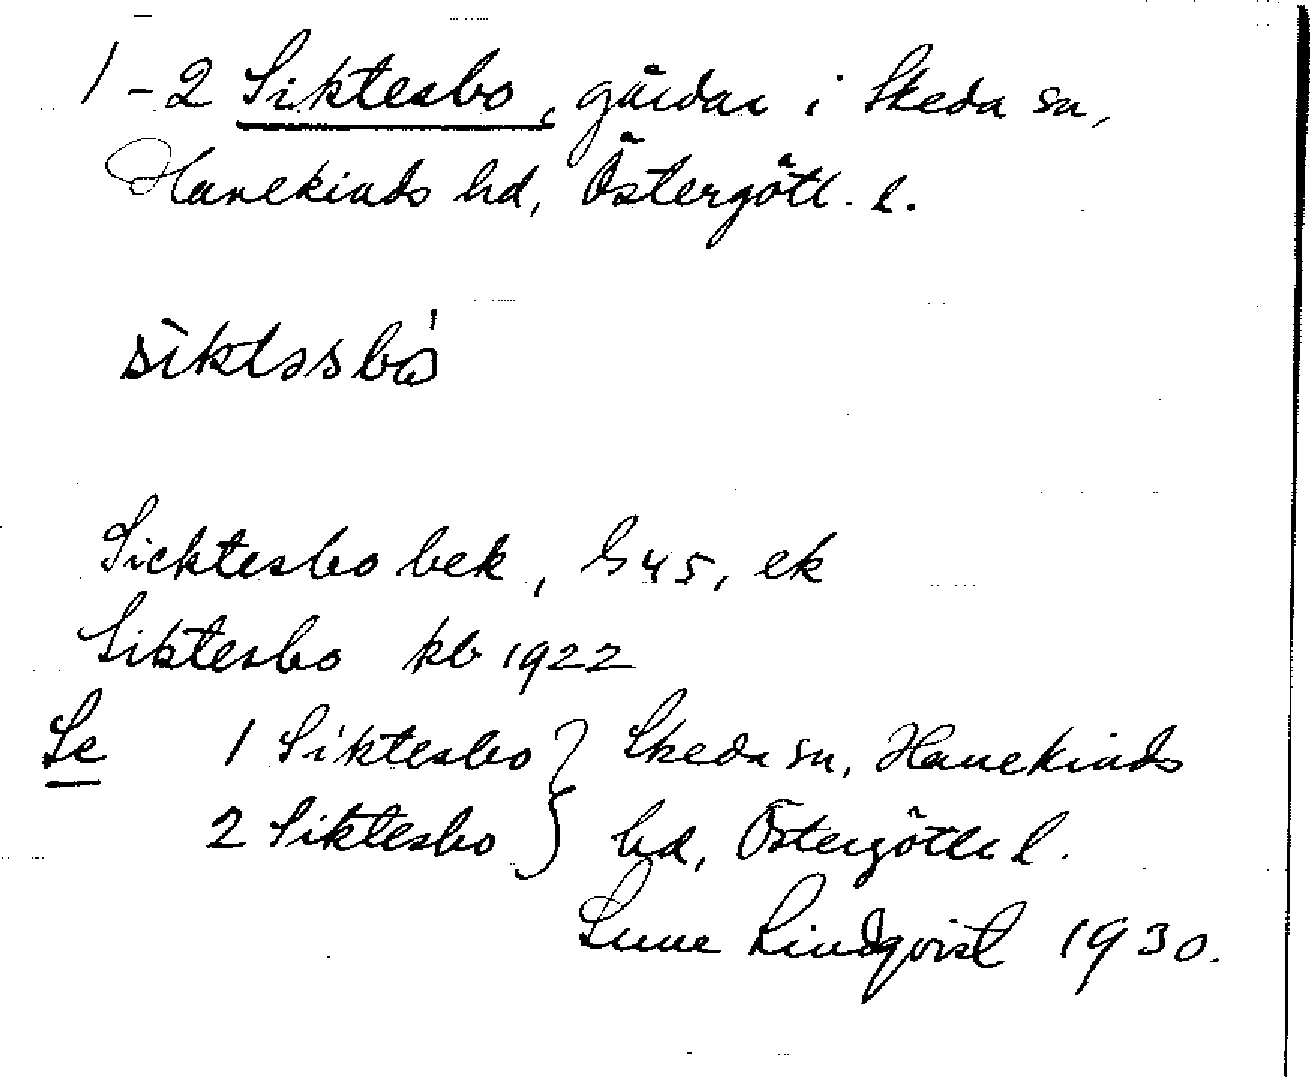 1-2 Siktesbo, gårdar i Skeda sn,
Hanekinds hd, Östergötl. l.
sìktəsbó
Sicktesbo bek, G 45, ek
Siktesbo kb 1922
Se 1 Siktesbo } Skeda sn, Hanekinds
2 Siktesbo } hd, Östergötls l.
Sune Lindqvist 1930.